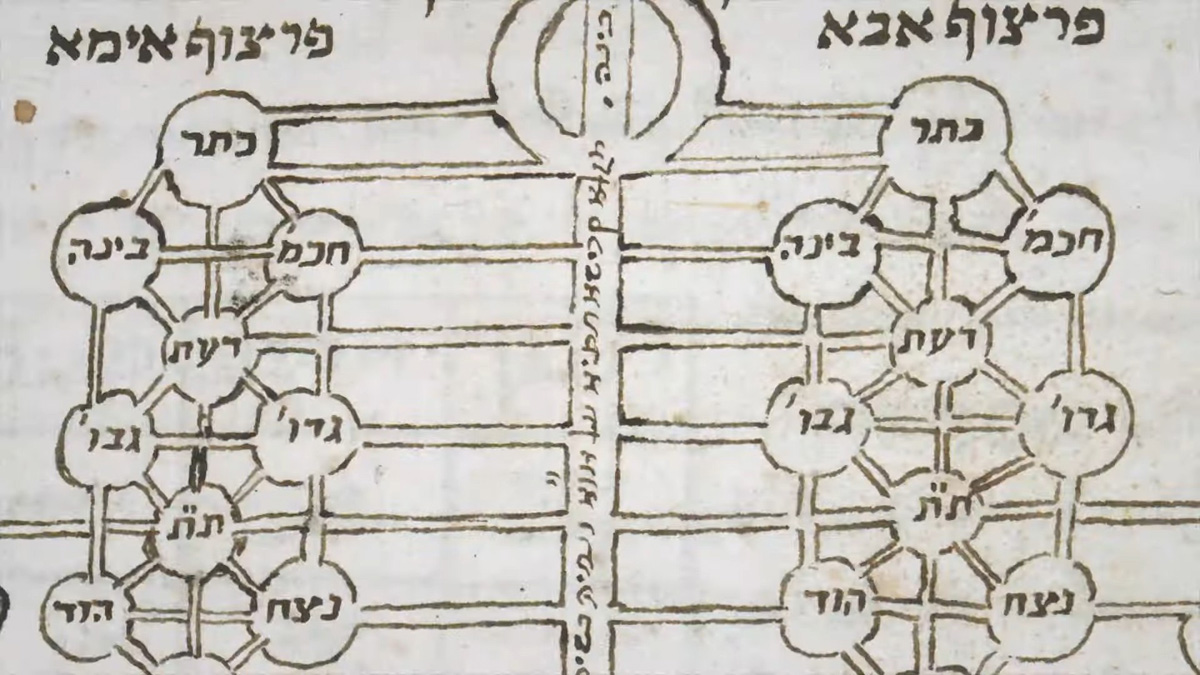 פרצוף אבא
כתר
חכמ׳
בינה
דעת
גדו׳
גבו׳
ת״ת
נצח
הוד
בינה
פרצוף אימא
כתר
חכמ׳
בינה
דעת
גדו׳
גבו׳
ת״ת
נצח
הוד